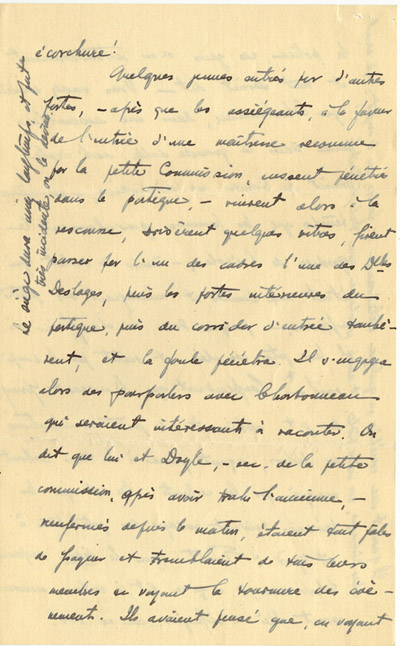 écorchure!
Quelques jeunes entrés par d'autres
portes, – après que les assiégeants, à la faveur
de l'entrée d'une maîtresse reconnue
par la petite Commission, eussent pénétré
dans le portique, – vinrent alors à la
rescousse, brisèrent quelques vitres, firent
passer par l'un des cadres l'une des Dlles
Desloges, puis les portes intérieures du
portique, puis du corridor d'entrée tombè-
rent, et la foule pénétra. Il s'engagea
alors des pourparlers avec Charbonneau
qui seraient intéressants à raconter. On
dit que lui et Doyle, – sec. de la petite
commission, après avoir trahi l'ancienne, –
renfermés depuis le matin, étaient tout pâles
de frayeur et tremblaient de tous leurs
membres en voyant la tournure des évè-
nements. Ils avaient pensé que, en voyant
Le siège dura ainsi longtemps, et fut
très incidenté, on le devine